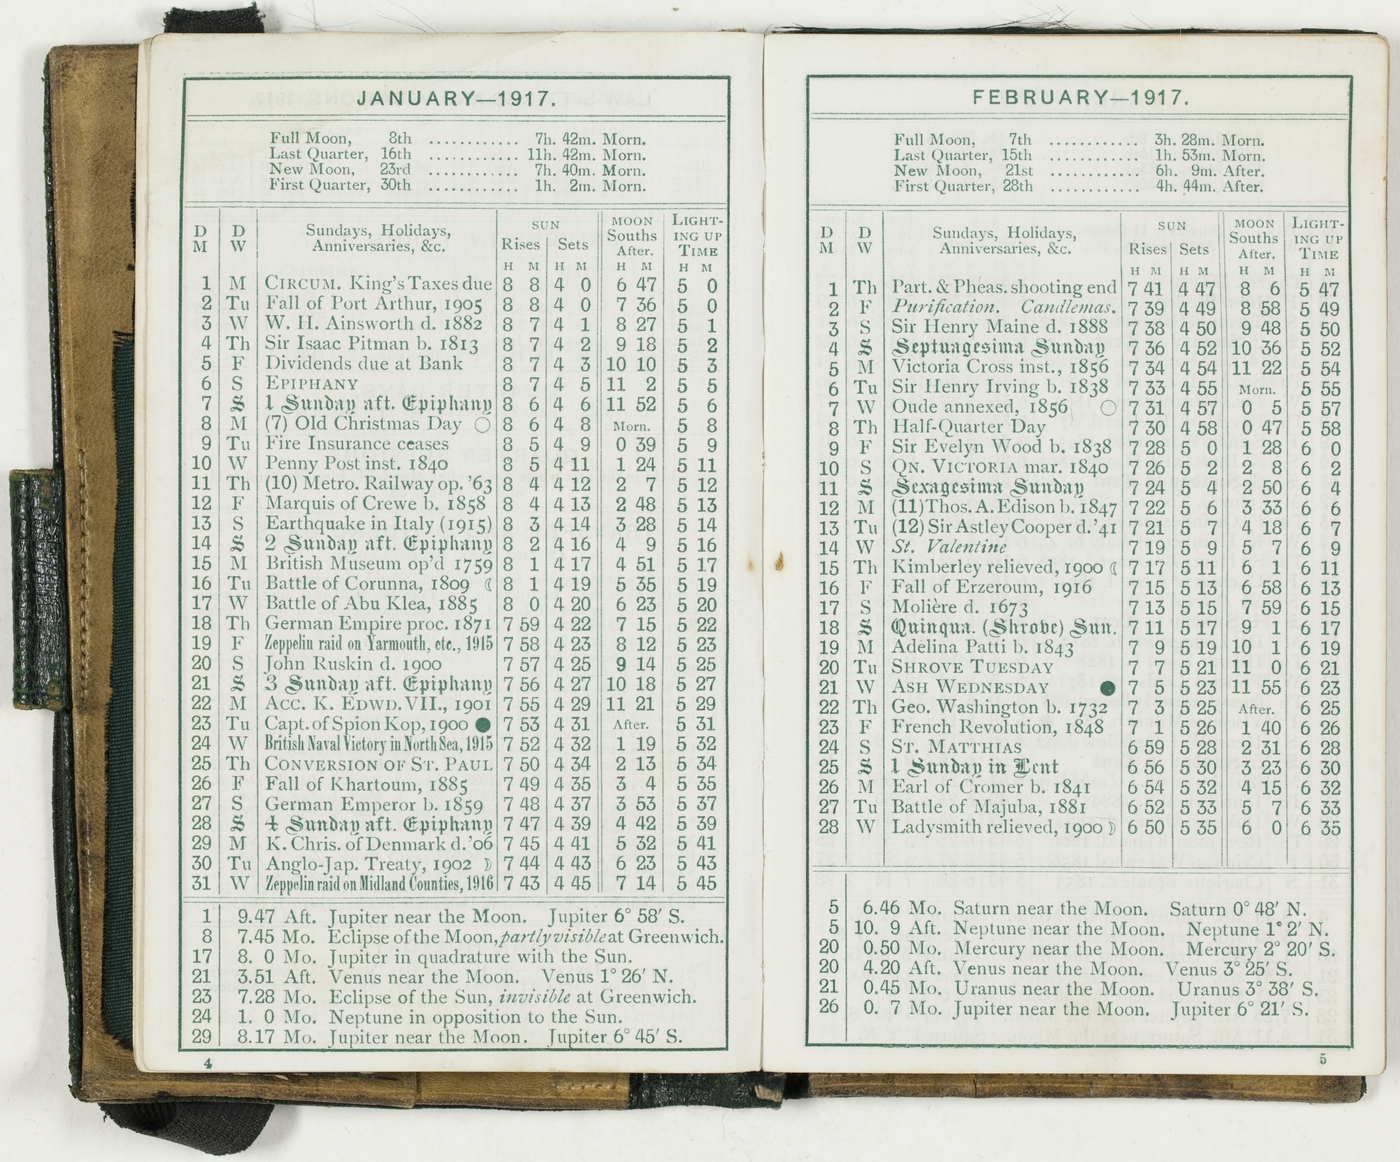 JANUARY—1917.
Full Moon, 8th ............ 7h. 42m. Morn.
Last Quarter, 16th ............ 11h. 42m. Morn.
New Moon, 23rd ............ 7h. 40m. Morn.
First Quarter, 30th ............ 1h. 2m. Morn.
D M
D W
Sundays, Holidays, Anniversaries, &c.
SUN
Rises Sets
MOON Souths After.
LIGHT-ING UP TIME
H M H M H M H M
1 M CIRCUM. King's Taxes due 8 8 4 0 6 47 5 0
2 Tu Fall of Port Arthur, 1905 8 8 4 0 7 36 5 0
3 W W. H. Ainsworth d. 1882 8 7 4 1 8 27 5 1
4 Th Sir Isaac Pitman b. 1813 8 7 4 2 9 18 5 2
5 F Dividends due at Bank 8 7 4 3 10 10 5 3
6 S EPIPHANY 8 7 4 5 11 2 5 5
7 S 1 Sunday aft. Epiphany 8 6 4 6 11 52 5 6
8 M (7) Old Christmas Day ○ 8 6 4 8 Morn. 5 8
9 Tu Fire Insurance ceases 8 5 4 9 0 39 5 9
10 W Penny Post inst. 1840 8 5 4 11 1 24 5 11
11 Th (10) Metro. Railway op. '63 8 4 4 12 2 7 5 12
12 F Marquis of Crewe b. 1858 8 4 4 13 2 48 5 13
13 S Earthquake in Italy (1915) 8 3 4 14 3 28 5 14
14 S 2 Sunday aft. Epiphany 8 2 4 16 4 9 5 16
15 M British Museum op'd 1759 8 1 4 17 4 51 5 17
16 Tu Battle of Corunna, 1809 ☾ 8 1 4 19 5 35 5 19
17 W Battle of Abu Klea, 1885 8 0 4 20 6 23 5 20
18 Th German Empire proc. 1871 7 59 4 22 7 15 5 22
19 F Zeppelin raid on Yarmouth, etc., 1915 7 58 4 23 8 12 5 23
20 S John Ruskin d. 1900 7 57 4 25 9 14 5 25
21 S 3 Sunday aft. Epiphany 7 56 4 27 10 18 5 27
22 M ACC. K. EDWD. VII., 1901 7 55 4 29 11 21 5 29
23 Tu Capt. of Spion Kop, 1900 ● 7 53 4 31 After. 5 31
24 W British Naval Victory in North Sea, 1915 7 52 4 32 1 19 5 32
25 Th CONVERSION OF ST. PAUL 7 50 4 34 2 13 5 34
26 F Fall of Khartoum, 1885 7 49 4 35 3 4 5 35
27 S German Emperor b. 1859 7 48 4 37 3 53 5 37
28 S 4 Sunday aft. Epiphany 7 47 4 39 4 42 5 39
29 M K. Chris. of Denmark d. '06 7 45 4 41 5 32 5 41
30 Tu Anglo-Jap. Treaty, 1902 ☽ 7 44 4 43 6 23 5 43
31 W Zeppelin raid on Midland Counties, 1916 7 43 4 45 7 14 5 45
1 9.47 Aft. Jupiter near the Moon. Jupiter 6° 58′ S.
8 7.45 Mo. Eclipse of the Moon, partly visible at Greenwich.
17 8. 0 Mo. Jupiter in quadrature with the Sun.
21 3.51 Aft. Venus near the Moon. Venus 1° 26′ N.
23 7.28 Mo. Eclipse of the Sun, invisible at Greenwich.
24 1. 0 Mo. Neptune in opposition to the Sun.
29 8.17 Mo. Jupiter near the Moon. Jupiter 6° 45′ S.
4
FEBRUARY—1917.
Full Moon, 7th ............ 3h. 28m. Morn.
Last Quarter, 15th ............ 1h. 53m. Morn.
New Moon, 21st ............ 6h. 9m. After.
First Quarter, 28th ............ 4h. 44m. After.
D M
D W
Sundays, Holidays, Anniversaries, &c.
SUN
Rises Sets
MOON Souths After.
LIGHT-ING UP TIME
H M H M H M H M
1 Th Part. & Pheas. shooting end 7 41 4 47 8 6 5 47
2 F Purification. Candlemas. 7 39 4 49 8 58 5 49
3 S Sir Henry Maine d. 1888 7 38 4 50 9 48 5 50
4 S Septuagesima Sunday 7 36 4 52 10 36 5 52
5 M Victoria Cross inst., 1856 7 34 4 54 11 22 5 54
6 Tu Sir Henry Irving b. 1838 7 33 4 55 Morn. 5 55
7 W Oude annexed, 1856 ○ 7 31 4 57 0 5 5 57
8 Th Half-Quarter Day 7 30 4 58 0 47 5 58
9 F Sir Evelyn Wood b. 1838 7 28 5 0 1 28 6 0
10 S QN. VICTORIA mar. 1840 7 26 5 2 2 8 6 2
11 S Sexagesima Sunday 7 24 5 4 2 50 6 4
12 M (11) Thos. A. Edison b. 1847 7 22 5 6 3 33 6 6
13 Tu (12) Sir Astley Cooper d. '41 7 21 5 7 4 18 6 7
14 W St. Valentine 7 19 5 9 5 7 6 9
15 Th Kimberley relieved, 1900 ☾ 7 17 5 11 6 1 6 11
16 F Fall of Erzeroum, 1916 7 15 5 13 6 58 6 13
17 S Molière d. 1673 7 13 5 15 7 59 6 15
18 S Quinqua. (Shrove) Sun. 7 11 5 17 9 1 6 17
19 M Adelina Patti b. 1843 7 9 5 19 10 1 6 19
20 Tu SHROVE TUESDAY 7 7 5 21 11 0 6 21
21 W ASH WEDNESDAY ● 7 5 5 23 11 55 6 23
22 Th Geo. Washington b. 1732 7 3 5 25 After. 6 25
23 F French Revolution, 1848 7 1 5 26 1 40 6 26
24 S ST. MATTHIAS 6 59 5 28 2 31 6 28
25 S 1 Sunday in Lent 6 56 5 30 3 23 6 30
26 M Earl of Cromer b. 1841 6 54 5 32 4 15 6 32
27 Tu Battle of Majuba, 1881 6 52 5 33 5 7 6 33
28 W Ladysmith relieved, 1900 ☽ 6 50 5 35 6 0 6 35
5 6.46 Mo. Saturn near the Moon. Saturn 0° 48′ N.
5 10. 9 Aft. Neptune near the Moon. Neptune 1° 2′ N.
20 0.50 Mo. Mercury near the Moon. Mercury 2° 20′ S.
20 4.20 Aft. Venus near the Moon. Venus 3° 25′ S.
21 0.45 Mo. Uranus near the Moon. Uranus 3° 38′ S.
26 0. 7 Mo. Jupiter near the Moon. Jupiter 6° 21′ S.
5